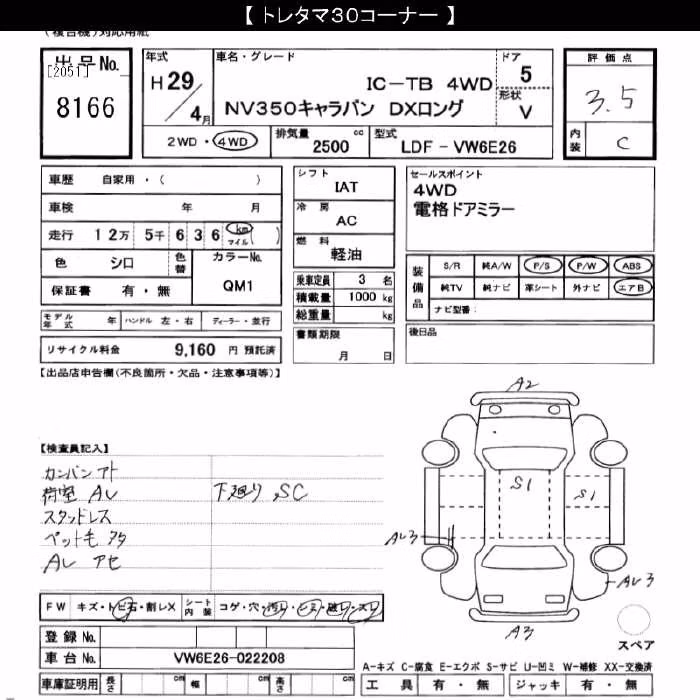 【 トレタマ30コーナー 】
(複合機)対応用紙
出品No.
[2051]
8166
年式
H29/4月
車名・グレード
IC-TB 4WD
NV350キャラバン DXロング
ドア
5
形状
V
評価点
3.5
内装
C
2WD・4WD
排気量
2500 cc
型式
LDF-VW6E26
車歴 自家用・( )
車検 年 月
走行 12万 5千 6 3 6 km マイル ( )
色 シロ 色替 カラーNo.
QM1
保証書 有・無
モデル年式 年 ハンドル 左・右 ディーラー・並行
リサイクル料金 9,160 円 預託済
シフト
IAT
冷房
AC
燃料
軽油
乗車定員 3 名
積載量 1000 kg
総重量 kg
書類期限
月 日
セールスポイント
4WD
電格ドアミラー
装備品
S/R 純A/W P/S P/W ABS
純TV 純ナビ 革シート 外ナビ エアB
ナビ型番:
後日品
【出品店申告欄(不良箇所・欠品・注意事項等)】
【検査員記入】
カンバンアト
荷室 AU
スタッドレス
ペット毛
AU アセ
下廻り SC
A2
S1
S1
AU3
AU3
A3
スペア
FW キズ・トビ石・割レX シート内装 コゲ・穴・汚レ・シミ・破レ・スレ
登録No.
車台No. VW6E26-022208
車庫証明用 長さ cm 幅 cm 高さ cm
A-キズ C-腐食 E-エクボ S-サビ U-凹ミ W-補修 XX-交換済
工具 有・無 ジャッキ 有・無